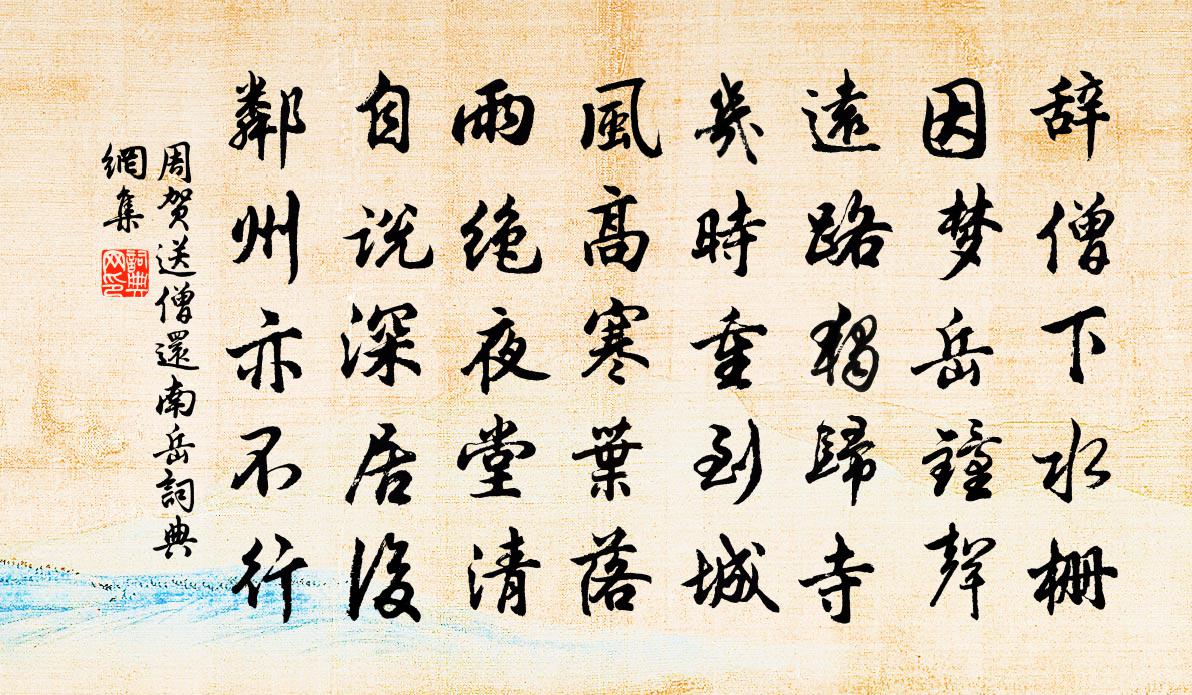 辞僧下水栅
因梦岳鐘聲
遠路獨歸寺
幾時重到城
風高寒葉落
雨絶夜堂清
自説深居後
鄰州亦不行
周賀送僧還南岳詞典
網集
詞典
网印